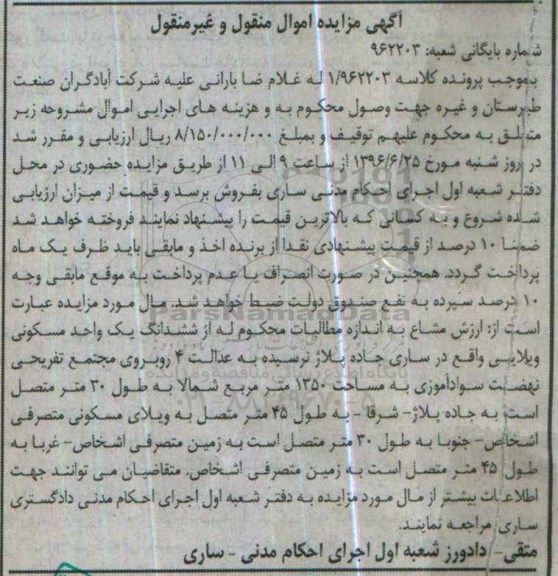 آگهی مزایده اموال منقول و غیرمنقول
شماره بایگانی شعبه: ۹۶۲۲۰۳
بموجب پرونده کلاسه ۱/۹۶۲۲۰۳ له غلام ضا بارانی علیه شرکت آبادگران صنعت
طبرستان و غیره جهت وصول محکوم به و هزینه های اجرایی اموال مشروحه زیر
متعلق به محکوم علیهم توقیف و بمبلغ ۸/۱۵۰/۰۰۰/۰۰۰ ریال ارزیابی و مقرر شد
در روز شنبه مورخ ۱۳۹۶/۶/۲۵ از ساعت ۹ الی ۱۱ از طریق مزایده حضوری در محل
دفتر شعبه اول اجرای احکام مدنی ساری بفروش برسد و قیمت از میزان ارزیابی
شده شروع و به کسانی که بالاترین قیمت را پیشنهاد نمایند فروخته خواهد شد
ضمنا ۱۰ درصد از قیمت پیشنهادی نقدا از برنده اخذ و مابقی باید ظرف یک ماه
پرداخت گردد. همچنین در صورت انصراف یا عدم پرداخت به موقع مابقی وجه
۱۰ درصد سپرده به نفع صندوق دولت ضبط خواهد شد. مال مورد مزایده عبارت
است از: ارزش مشاع به اندازه مطالبات محکوم له از ششدانگ یک واحد مسکونی
ویلایی واقع در ساری جاده پلاژ نرسیده به عدالت ۴ روبروی مجتمع تفریحی
نهضت سوادآموزی به مساحت ۱۳۵۰ متر مربع شمالا به طول ۳۰ متر متصل
است به جاده پلاژ- شرقا - به طول ۴۵ متر متصل به ویلای مسکونی متصرفی
اشخاص- جنوبا به طول ۳۰ متر متصل است به زمین متصرفی اشخاص- غربا به
طول ۴۵ متر متصل است به زمین متصرفی اشخاص. متقاضیان می توانند جهت
اطلاعات بیشتر از مال مورد مزایده به دفتر شعبه اول اجرای احکام مدنی دادگستری
ساری مراجعه نمایند.
متقی- دادورز شعبه اول اجرای احکام مدنی - ساری
ParsNamadData